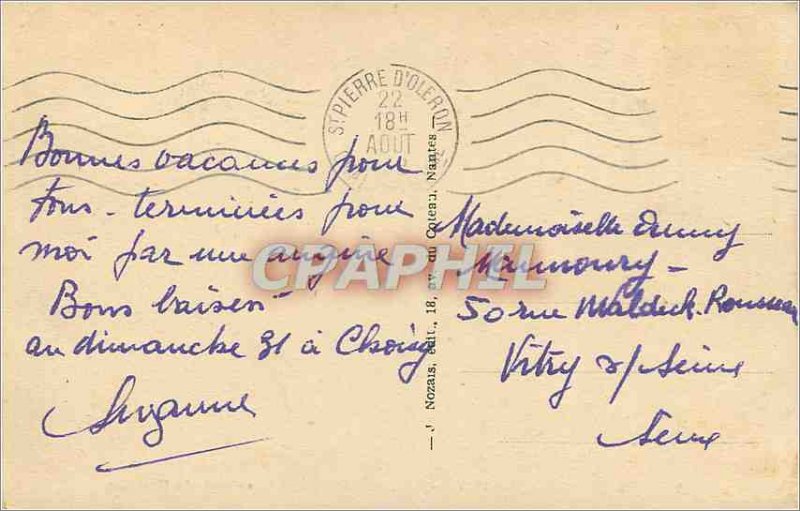 ST PIERRE D'OLERON
22
18H
AOUT
Bonnes vacances pour
tous - terminées pour
moi par une angine
Bons baisers -
au dimanche 31 à Choisy
Suzanne
— J. Nozais, édit., 18, av. du Coteau, Nantes —
Mademoiselle
50 rue Waldeck-Rousseau
Vitry s/Seine
Seine
CPAPHIL